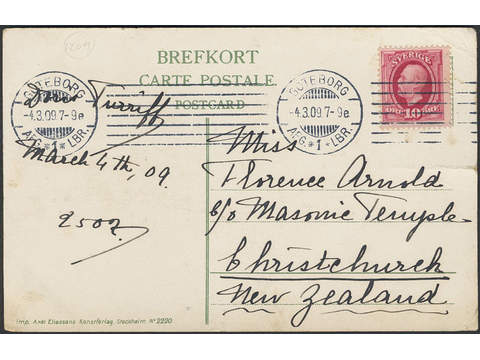 BREFKORT
CARTE POSTALE
POSTCARD
GÖTEBORG
-4.3.09.7-9e
AFG.*1*LBR.
GÖTEBORG
-4.3.09.7-9e
AFG.*1*LBR.
SVERIGE
10
Turriff
March 4th, 09.
2507
Miss
Florence Arnold
c/o Masonic Temple
Christchurch
New Zealand
Imp. Axel Eliassons Konstförlag, Stockholm Nº 2220